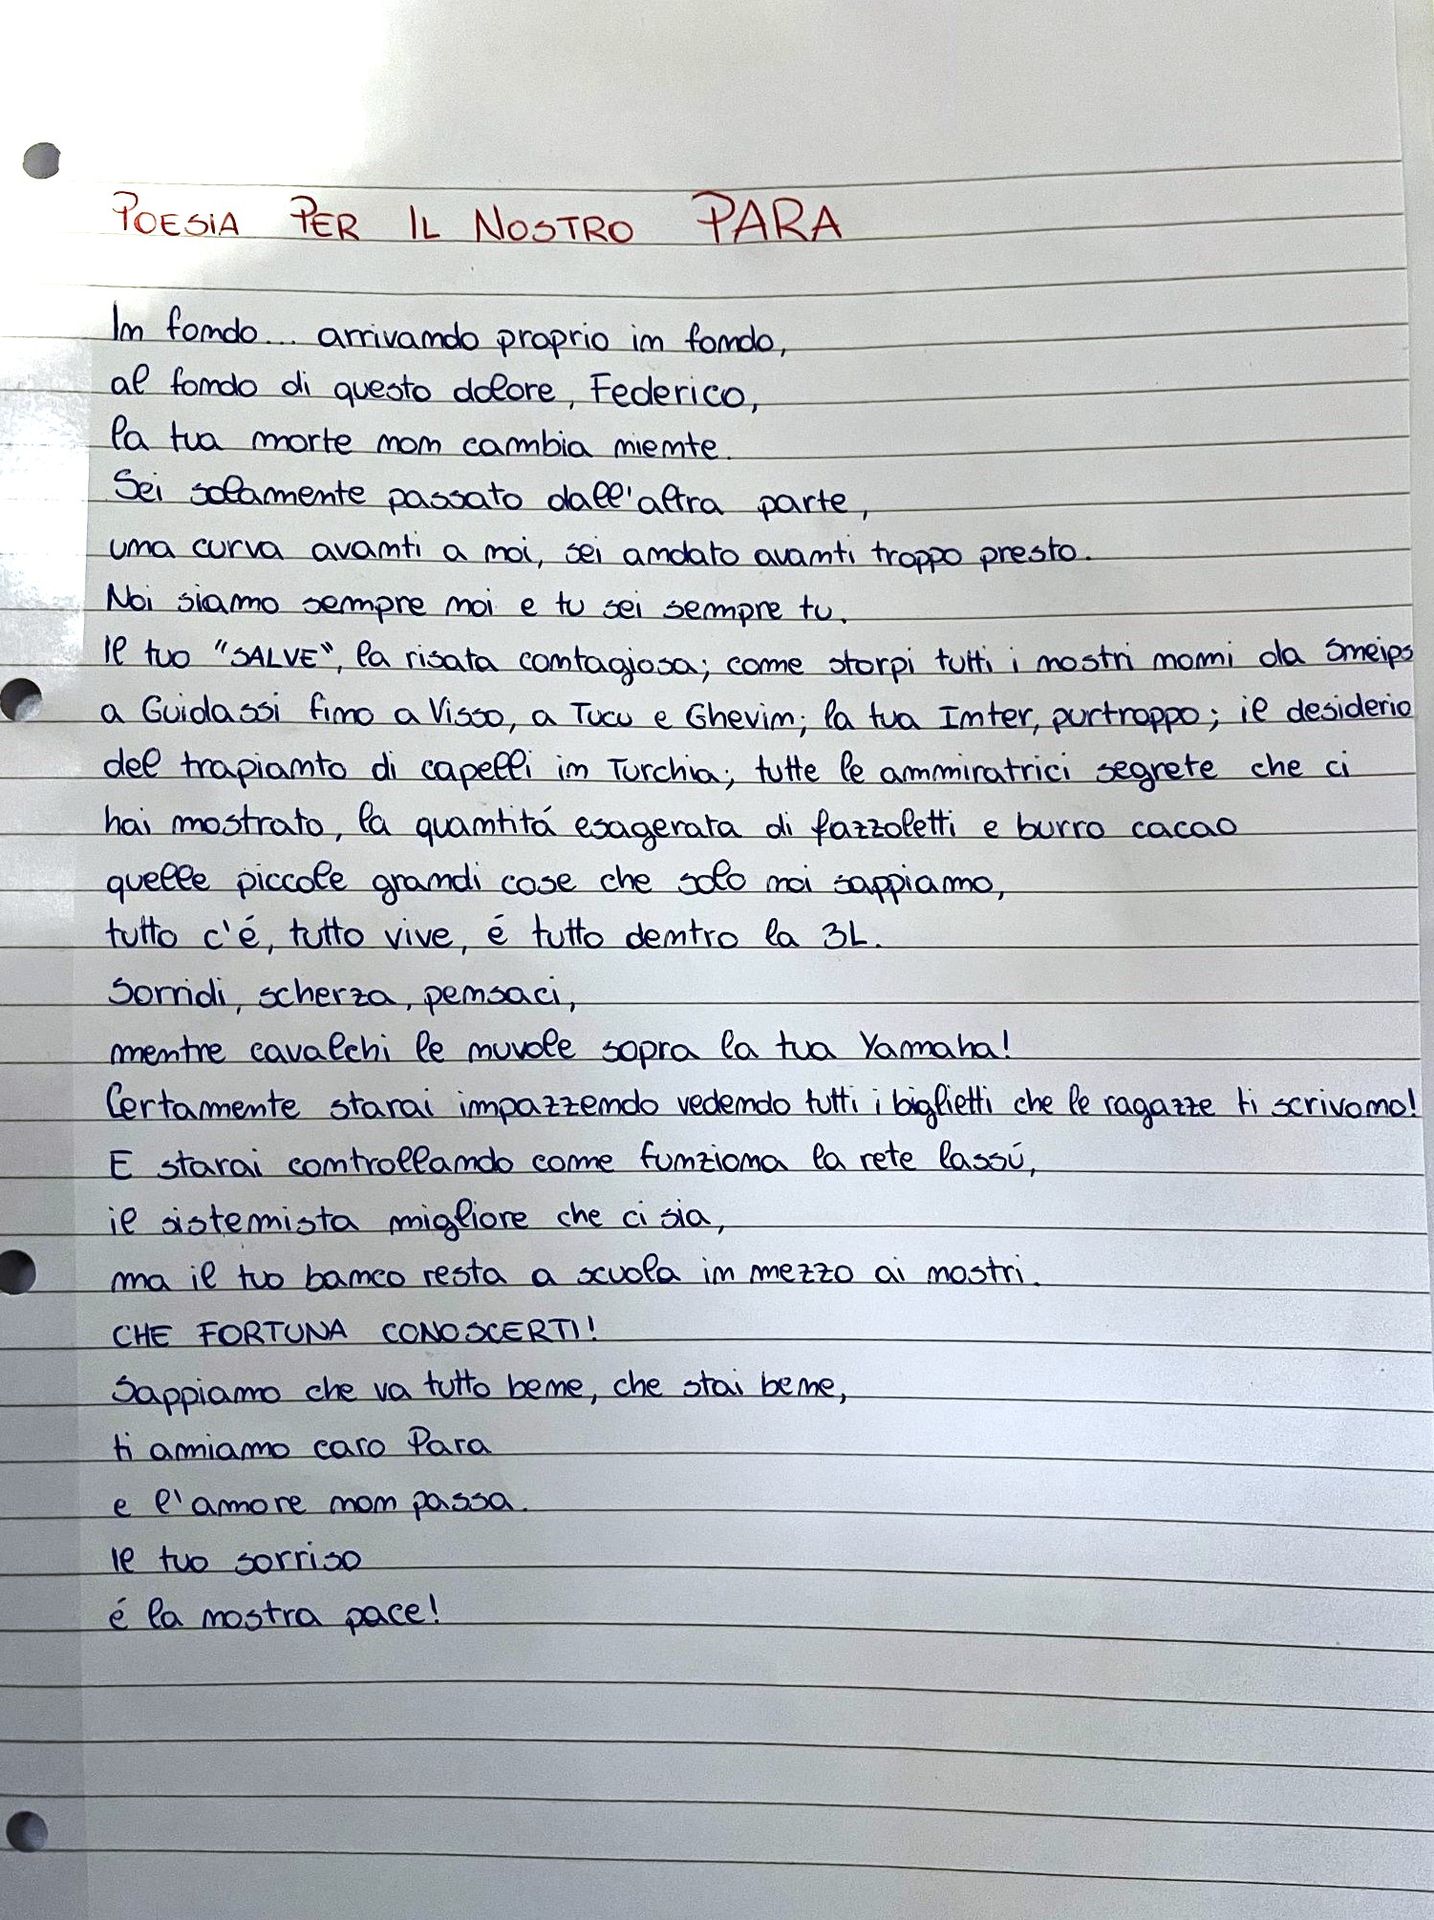 POESIA PER IL NOSTRO PARA
In fondo... arrivando proprio in fondo,
al fondo di questo dolore, Federico,
la tua morte non cambia niente.
Sei solamente passato dall'altra parte,
una curva avanti a noi, sei andato avanti troppo presto.
Noi siamo sempre noi e tu sei sempre tu.
Il tuo "SALVE", la risata contagiosa; come storpi tutti i nostri nomi da Smeips
a Guidassi fino a Visso, a Tucu e Ghevin; la tua Inter, purtroppo; il desiderio
del trapianto di capelli in Turchia; tutte le ammiratrici segrete che ci
hai mostrato, la quantitá esagerata di fazzoletti e burro cacao
quelle piccole grandi cose che solo noi sappiamo,
tutto c'é, tutto vive, é tutto dentro la 3L.
Sorridi, scherza, pensaci,
mentre cavalchi le nuvole sopra la tua Yamaha!
Certamente starai impazzendo vedendo tutti i biglietti che le ragazze ti scrivono!
E starai controllando come funziona la rete lassú,
il sistemista migliore che ci sia,
ma il tuo banco resta a scuola in mezzo ai nostri.
CHE FORTUNA CONOSCERTI!
Sappiamo che va tutto bene, che stai bene,
ti amiamo caro Para
e l'amore non passa.
Il tuo sorriso
é la nostra pace!